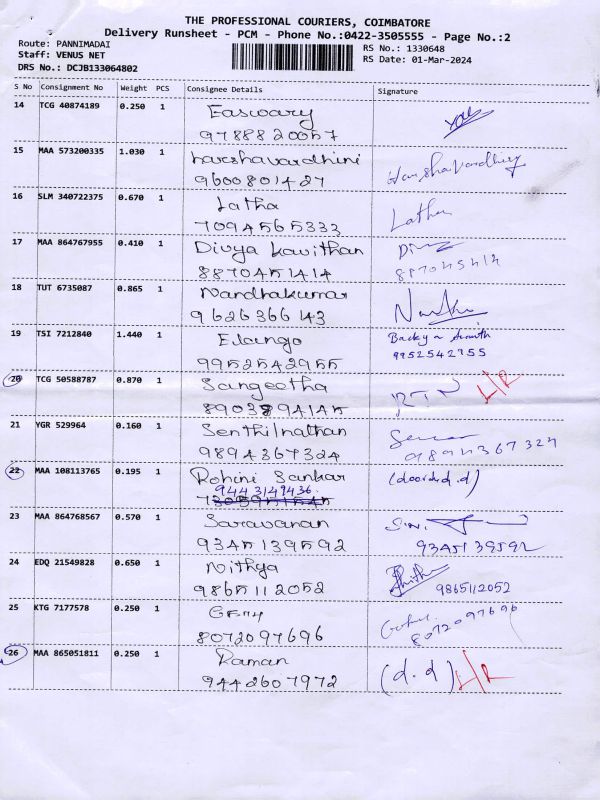 THE PROFESSIONAL COURIERS, COIMBATORE
Delivery Runsheet - PCM - Phone No.:0422-3505555 - Page No.:2
Route: PANNIMADAI
RS No.: 1330648
Staff: VENUS NET
RS Date: 01-Mar-2024
DRS No.: DCJB133064802
S No Consignment No Weight PCS Consignee Details Signature
14 TCG 40874189 0.250 1 Easwary
9788820057
15 MAA 573200335 1.030 1 harshavardhini
9600801427
16 SLM 340722375 0.670 1 Latha Latha
7094565333
17 MAA 864767955 0.410 1 Divya Kavithan
8870451414 8870451414
18 TUT 6735087 0.865 1 Nandhakumar
9626366143
19 TSI 7212840 1.440 1 Elango
9952542955 9952542955
20 TCG 50588787 0.870 1 Sangeetha
8903894145
21 YGR 529964 0.160 1 Senthilnathan
9894367324 9894367324
22 MAA 108113765 0.195 1 Rohini Sankar
9443149436
23 MAA 864768567 0.570 1 Saravanan
9345139592 9345139592
24 EDQ 21549828 0.650 1 Nithya
9865112052 9865112052
25 KTG 7177578 0.250 1
8072097696 8072097696
26 MAA 865051811 0.250 1 Raman (d.d)
9442607972